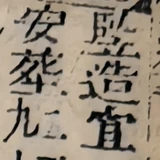 監造宜
安葬九五